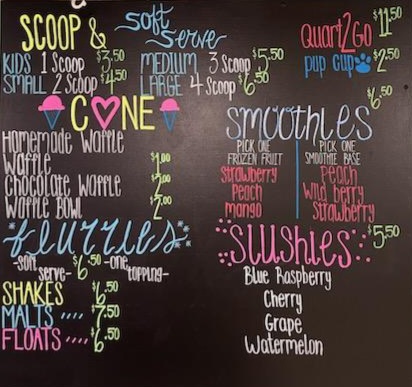 SCOOP & Soft Serve
KIDS 1 Scoop $3.50
SMALL 2 Scoop $4.50
MEDIUM 3 Scoop $5.50
LARGE 4 Scoop $6.50
Quart2Go $11.50
PUP CUP $2.50
CONE
Homemade Waffle
Waffle $1.00
Chocolate Waffle $2.00
Waffle Bowl $2.00
Smoothies $6.50
PICK ONE
FROZEN FRUIT
Strawberry
Peach
Mango
PICK ONE
SMOOTHIE BASE
Peach
Wild berry
Strawberry
flurries
-soft serve- $6.50 -one topping-
SHAKES $6.50
MALTS .... $7.50
FLOATS .... $6.50
Slushies $5.50
Blue Raspberry
Cherry
Grape
Watermelon